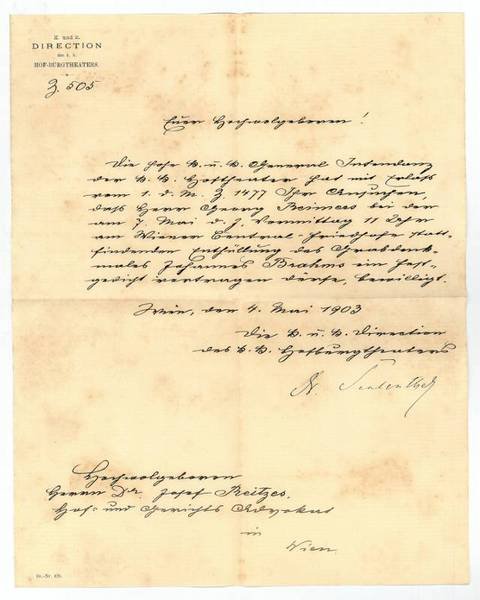 K. und k.
DIRECTION
des k. k.
HOF-BURGTHEATERS.
Z. 505
Euer Hochwolgeboren!
Die hohe k. u. k. General Intendanz
der k. k. Hoftheater hat mit Erlaß
vom 1. d. M. Z 1477 Ihr Ansuchen,
daß Herr Georg Reimers bei der
am 7 Mai d. J. Vormittag 11 Uhr
am Wiener Central-Friedhofe statt-
findenden Enthüllung des Grabdenk-
males Johannes Brahms ein Fest-
gedicht vortragen dürfe, bewilligt.
Wien, den 4. Mai 1903
Die k. u. k. Direction
des k. k. Hofburgtheaters
Hochwolgeboren
Herrn Dr. Josef Reitzes.
Hof- und Gerichts Advokat
in
Wien